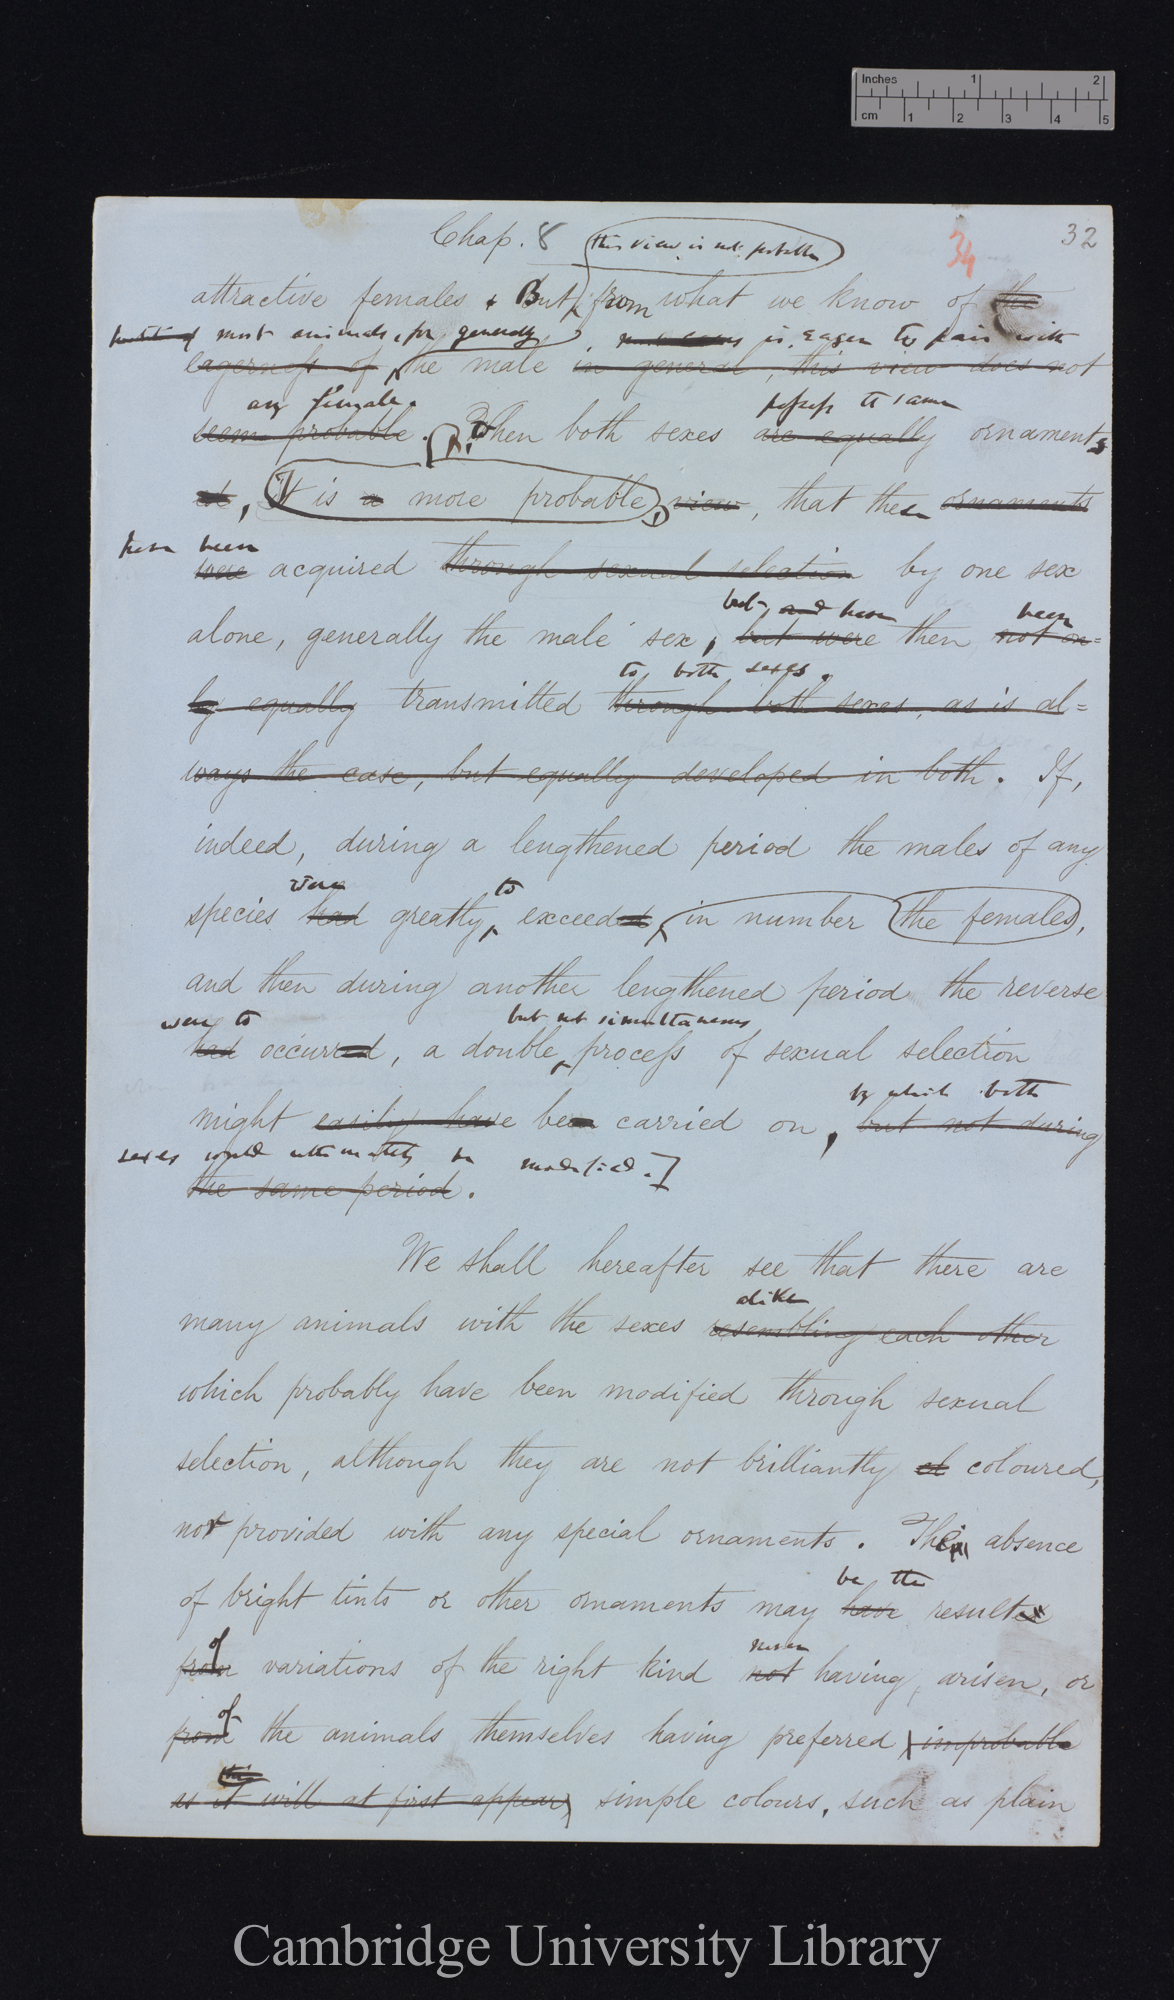 Inches 1 2
cm 1 2 3 4 5
Chap. 8 this view is not probable 34 32
attractive females. But from what we know of the
most animals, for generally is eager to pair with
eagerness of the male in general, this view does not
any female. possess the same
seem probable. When both sexes are equally ornaments
ed, It is a more probable, view, that these ornaments
have been
were acquired through sexual selection by one sex
but, and have been
alone, generally the male sex, but were then not on=
to both sexes.
ly equally transmitted through both sexes, as is al=
ways the case, but equally developed in both. If,
indeed, during a lengthened period the males of any
were to
species had greatly exceeded in number the females,
and then during another lengthened period the reverse
were to but not simultaneous
had occurred, a double process of sexual selection
by which both
might easily have been carried on, but not during
sexes would ultimately be modified.]
the same period.
We shall hereafter see that there are
alike
many animals with the sexes resembling each other
which probably have been modified through sexual
selection, although they are not brilliantly coloured,
nor provided with any special ornaments. The absence
be the
of bright tints or other ornaments may have result
of never
from variations of the right kind not having arisen, or
of
from the animals themselves having preferred improbable
this
as it will at first appear) simple colours, such as plain
Cambridge University Library